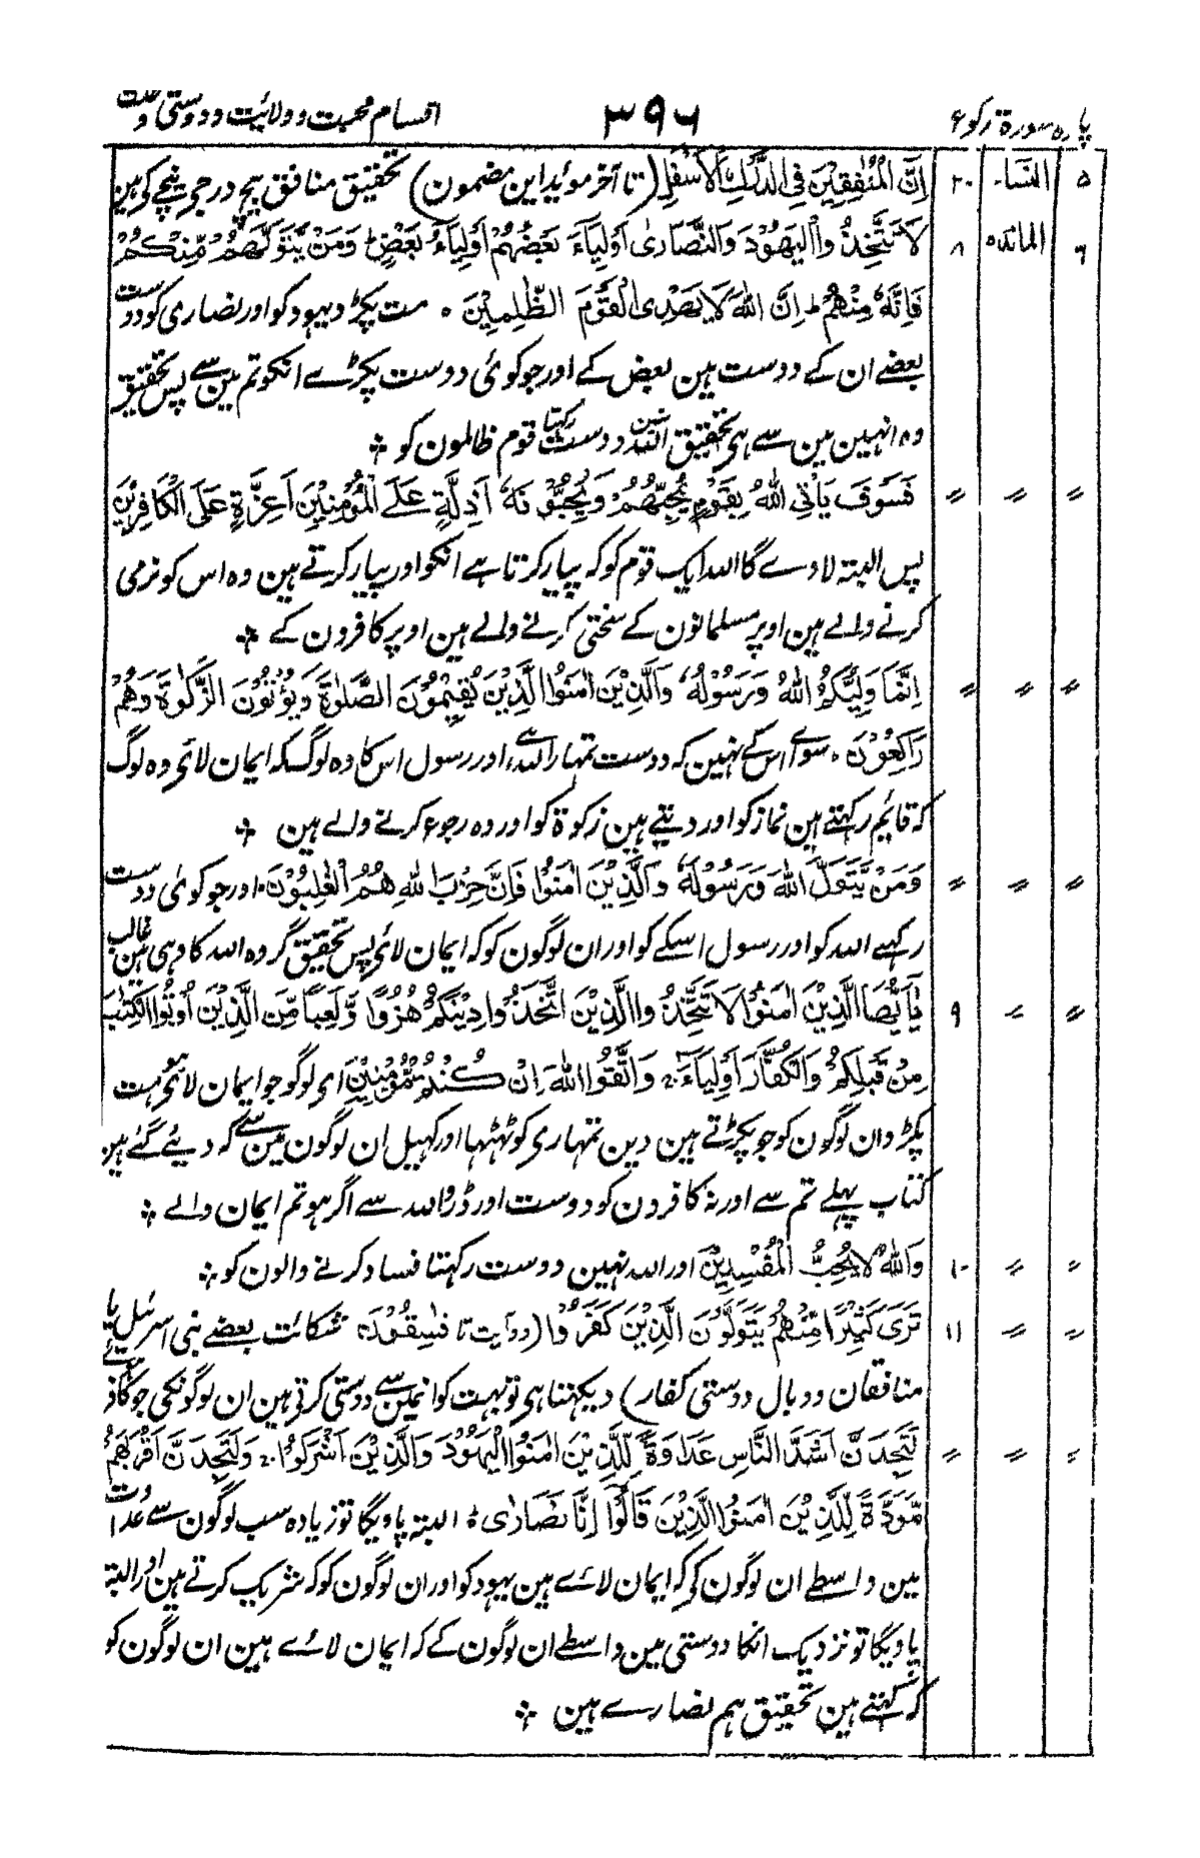 پارہ سورۃ رکوع ۳۹۶ اقسام محبت و ولائیت و دوستی و
۵ النساء ۲۰ اِنَّ الْمُنٰفِقِیْنَ فِی الدَّرْكِ الْاَسْفَلِ (تا آخر موئید این مضمون) تحقیق منافق بیچ درجے نیچے کی ہین
۶ المائدہ ۸ لَا تَتَّخِذُ واالْیَهُوْدَ وَالنَّصَارٰی اَوْلِیَاءَ بَعْضُهُمْ اَوْلِیَاءُ بَعْضٍ ط وَمَنْ یَّتَوَلَّهُمْ مِّنْكُمْ
فَاِنَّهٗ مِنْهُمْ ط اِنَّ اللّٰهَ لَا یَهْدِی الْقَوْمَ الظّٰلِمِیْنَ ۰ مت پکڑو یہود کو اور نصاری کو دوست
بعضے ان کے دوست ہین بعض کے اور جو کوئی دوست پکڑے انکو تم مین سے پس تحقیق
وہ انہین مین سے ہی تحقیق اللہ نہین دوست رکہتا قوم ظالمون کو ❖
〃 〃 〃 فَسَوْفَ یَاْتِی اللّٰهُ بِقَوْمٍ یُّحِبُّهُمْ وَیُحِبُّوْنَهٗ اَذِلَّةٍ عَلَے الْمُؤْمِنِیْنَ اَعِزَّةٍ عَلَی الْكَافِرِیْنَ
پس البتہ لاوے گا اللہ ایک قوم کو کہ پیار کرتا ہے انکو اور پیار کرتے ہین وہ اس کو نرمی
کرنے والے ہین اوپر مسلمانون کے سختی کرنے والے ہین اوپر کافرون کے ❖
〃 〃 〃 اِنَّمَا وَلِیُّكُمُ اللّٰهُ وَرَسُوْلُهٗ وَالَّذِیْنَ اٰمَنُوا الَّذِیْنَ یُقِیْمُوْنَ الصَّلٰوةَ وَیُؤْتُوْنَ الزَّكٰوةَ وَهُمْ
رَاكِعُوْنَ ۰ سواے اس کے نہین کہ دوست تمہارا اللہ ہے اور رسول اس کا وہ لوگ کہ ایمان لائے وہ لوگ
کہ قایم رکہتے ہین نماز کو اور دیتے ہین زکوۃ کو اور وہ رجوع کرنے والے ہین ❖
〃 〃 〃 وَمَنْ یَّتَوَلَّ اللّٰهَ وَرَسُوْلَهٗ وَالَّذِیْنَ اٰمَنُوْا فَاِنَّ حِزْبَ اللّٰهِ هُمُ الْغٰلِبُوْنَ ۰ اور جو کوئی دوست
رکہے اللہ کو اور رسول اسکے کو اور ان لوگون کو کہ ایمان لائے پس تحقیق گروہ اللہ کا وہی ہین غالب
〃 〃 ۹ یٰاَیُّهَا الَّذِیْنَ اٰمَنُوْا لَا تَتَّخِذُ واالَّذِیْنَ اتَّخَذُ وا دِیْنَكُمْ هُزُوًا وَّلَعِبًا مِّنَ الَّذِیْنَ اُوْتُوا الْكِتٰبَ
مِنْ قَبْلِكُمْ وَالْكُفَّارَ اَوْلِیَاءَ ۚ وَاتَّقُوا اللّٰهَ اِنْ كُنْتُمْ مُّؤْمِنِیْنَ ای لوگو جو ایمان لائے ہو مت
پکڑو ان لوگون کو جو پکڑتے ہین دین تمہاری کو ٹہٹہا اور کہیل ان لوگون مین سے کہ دیئے گئے ہین
کتاب پہلے تم سے اور نہ کافرون کو دوست اور ڈرو اللہ سے اگر ہو تم ایمان والے ❖
〃 〃 ۱۰ وَاللّٰهُ لَا یُحِبُّ الْمُفْسِدِیْنَ اور اللہ نہین دوست رکہتا فساد کرنے والون کو ❖
〃 〃 ۱۱ تَرٰی كَثِیْرًا مِّنْهُمْ یَتَوَلَّوْنَ الَّذِیْنَ كَفَرُوْا (دو آیت تا فٰسِقُوْنَ شکائت بعضے بنی اسرئیل یا
منافقان و وبال دوستی کفار) دیکہتا ہی تو بہت کو انمین سے دوستی کرتی ہین ان لوگونکی جو کافر
〃 〃 〃 لَتَجِدَنَّ اَشَدَّ النَّاسِ عَدَاوَةً لِّلَّذِیْنَ اٰمَنُوا الْیَهُوْدَ وَالَّذِیْنَ اَشْرَكُوْا ۚ وَلَتَجِدَنَّ اَقْرَبَهُمْ
مَّوَدَّةً لِّلَّذِیْنَ اٰمَنُوا الَّذِیْنَ قَالُوْا اِنَّا نَصَارٰی ط البتہ پاویگا تو زیادہ سب لوگون سے عداوت
مین واسطے ان لوگون کی کہ ایمان لائے ہین یہود کو اور ان لوگون کو کہ شریک کرتے ہین اور البتہ
پاویگا تو نزدیک انکا دوستی مین واسطے ان لوگون کے کہ ایمان لائے ہین ان لوگون کو
کہ کہتے ہین تحقیق ہم نصارے ہین ❖